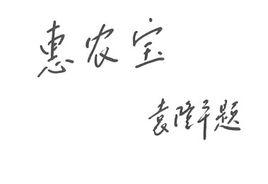 惠农宝
袁隆平题